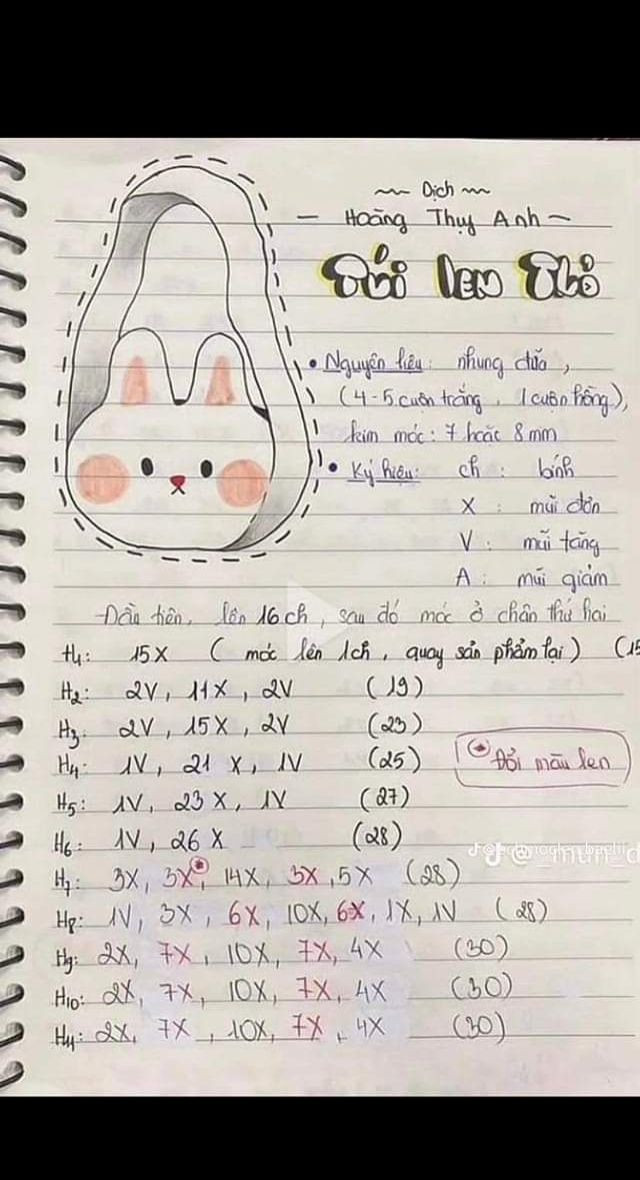 ~ Dịch ~
- Hoàng Thuỵ Anh -
Túi len Thỏ
• Nguyên liệu: nhung đũa,
(4-5 cuộn trắng, 1 cuộn hồng),
kim móc: 7 hoặc 8 mm
• Ký hiệu: ch: bính
X: mũi đơn
V: mũi tăng
A: mũi giảm
- Đầu tiên, lên 16 ch, sau đó móc ở chân thứ hai
H1: 15X (móc lên 1ch, quay sản phẩm lại) (15
H2: 2V, 11X, 2V (19)
H3: 2V, 15X, 2V (23)
H4: 1V, 21X, 1V (25)
* Đổi màu len
H5: 1V, 23X, 1V (27)
H6: 1V, 26X (28)
H7: 3X, 3X*, 14X, 3X, 5X (28)
H8: 1V, 3X, 6X, 10X, 6X, 1X, 1V (28)
H9: 2X, 7X, 10X, 7X, 4X (30)
H10: 2X, 7X, 10X, 7X, 4X (30)
H11: 2X, 7X, 10X, 7X, 4X (30)